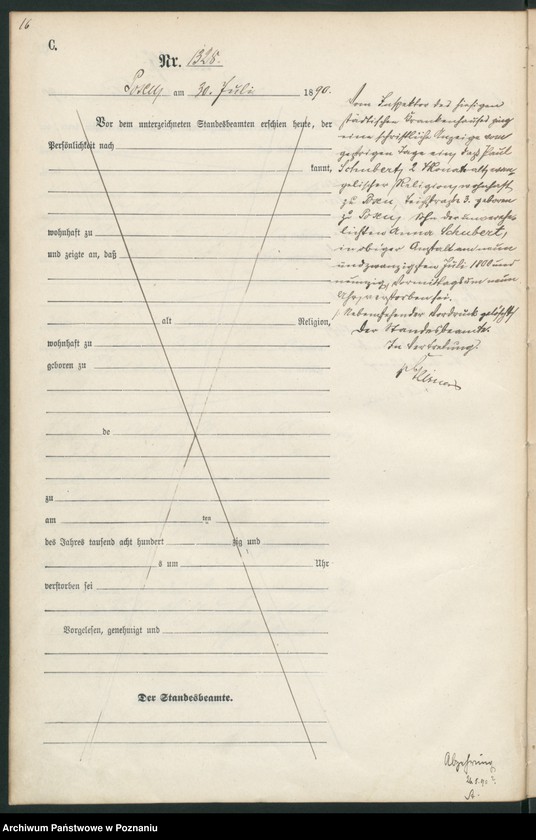 16
C.
Nr. 1328.
Posen am 30. Juli 1890.
Vor dem unterzeichneten Standesbeamten erschien heute, der
Persönlichkeit nach
kannt,
wohnhaft zu
und zeigte an, daß
alt Religion,
wohnhaft zu
geboren zu
de
zu
am ten
des Jahres tausend acht hundert zig und
s um Uhr
verstorben sei
Vorgelesen, genehmigt und
Der Standesbeamte.
Vom Inspektor des hiesigen
städtischen Krankenhauses ging
eine schriftliche Anzeige vom
gestrigen Tage ein, daß Paul
Schubert, 2 Monate alt, evan
gelischer Religion, wohnhaft
zu 3. geboren
zu Posen, Sohn der unverehe
lichten Anna Schubert,
in obiger Anstalt am neun
undzwanzigsten Juli 1800 und
neunzig, Vormittags um neun
Uhr, verstorben sei.
Nebenstehender Vordruck gelöscht
Der Standesbeamte.
In Vertretung.
Archiwum Państwowe w Poznaniu